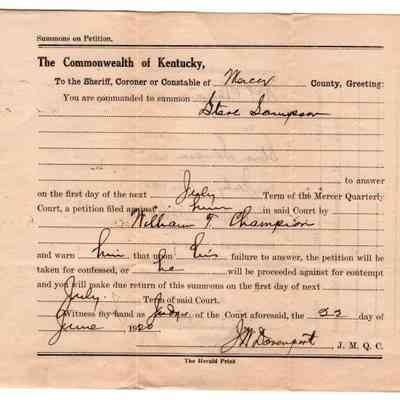 Summons on Petition.
The Commonwealth of Kentucky,
To the Sheriff, Coroner or Constable of Mercer County, Greeting:
You are commanded to summon
Steve Sampson
to answer
on the first day of the next July Term of the Mercer Quarterly
Court, a petition filed against him in said Court by
William T. Champion
and warn him that upon his failure to answer, the petition will be
taken for confessed, or he will be proceeded against for contempt
and you will make due return of this summons on the first day of next
July Term of said Court.
Witness my hand as Judge of the Court aforesaid, the 22 day of
June 1920 Davenport J. M. Q. C.
The Herald Print